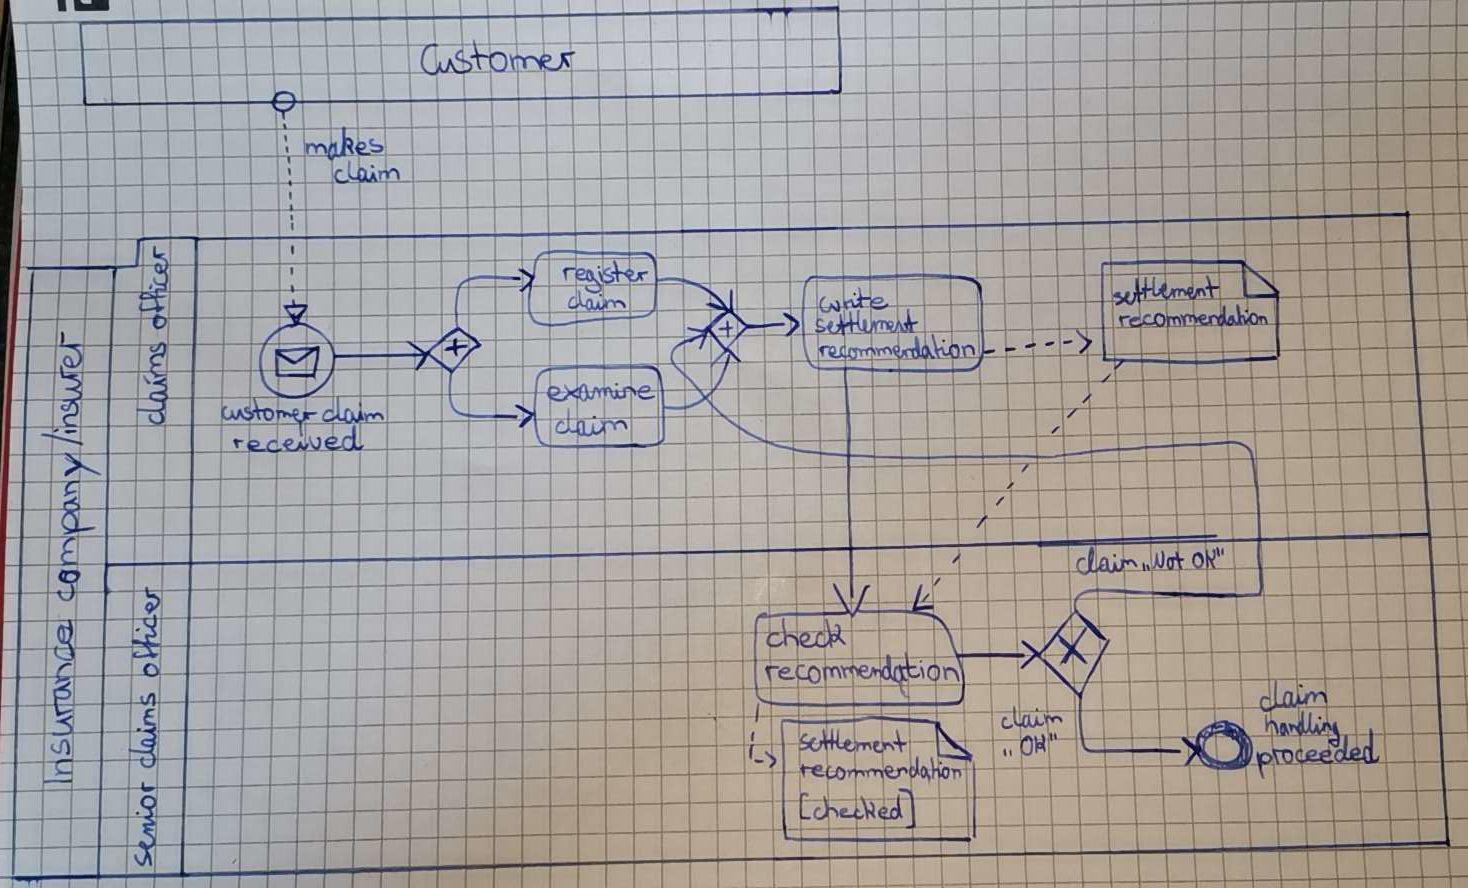 Customer
makes
claim
Insurance company/insurer
claims officer
customer claim
received
register
claim
examine
claim
write
settlement
recommendation
settlement
recommendation
senior claims officer
claim „Not OK"
check
recommendation
settlement
recommendation
[checked]
claim
„OK"
claim
handling
proceeded